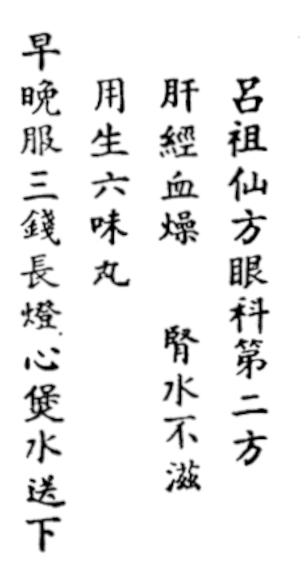 呂祖仙方眼科第二方
肝經血燥　腎水不滋
用生六味丸
早晚服三錢長燈心煲水送下